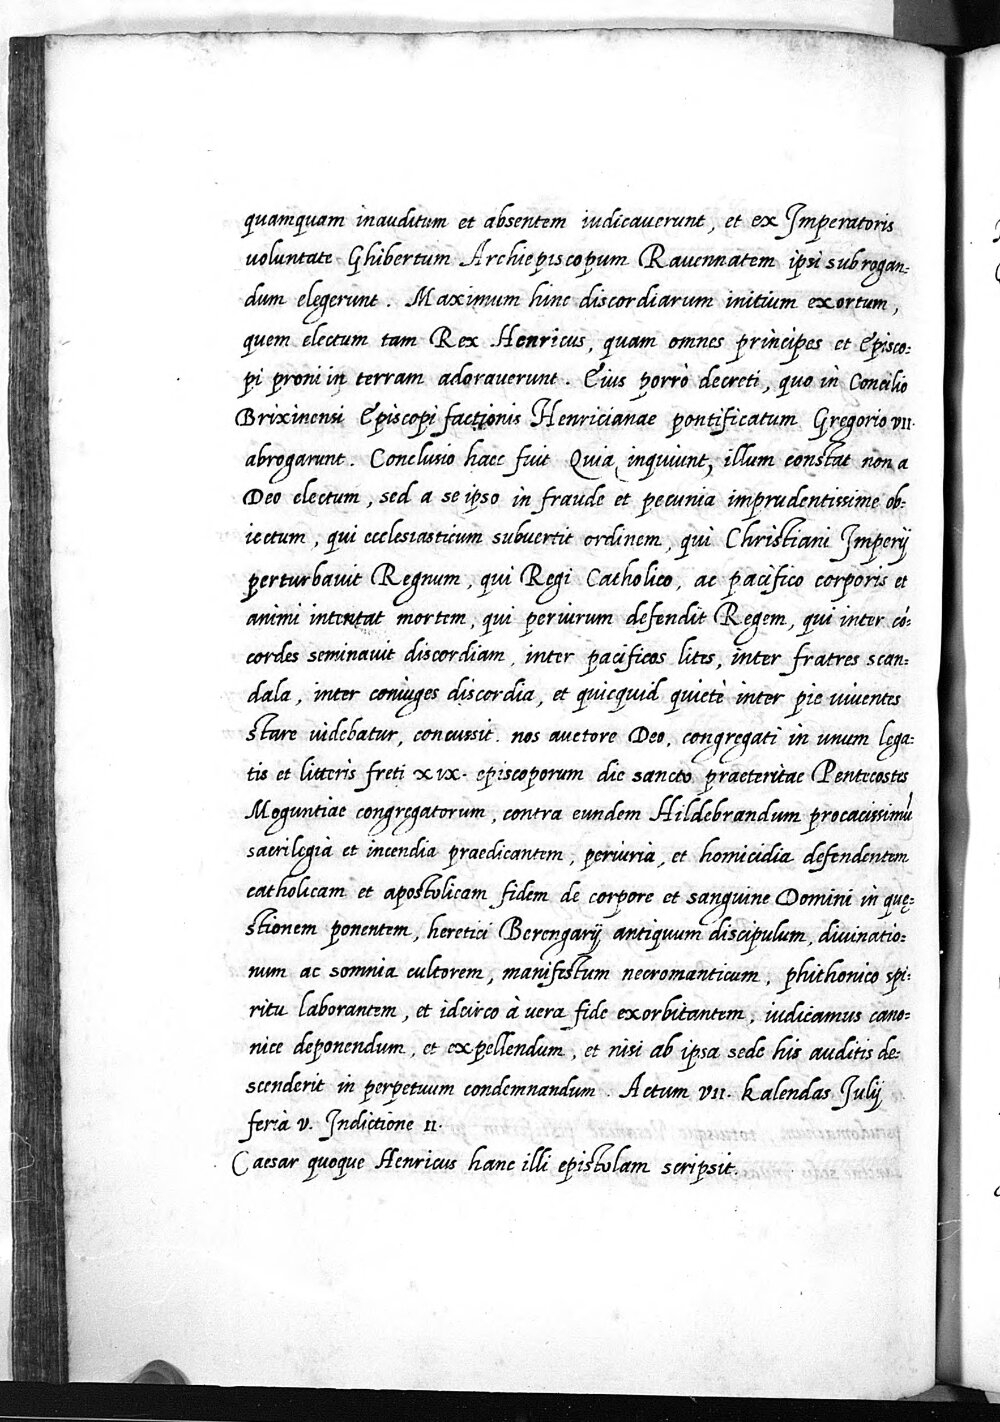 quamquam inauditum et absentem iudicauerunt, et ex Imperatoris
uoluntate Ghibertum Archiepiscopum Rauennatem ipsi subrogan:
dum elegerunt. Maximum hinc discordiarum initium exortum,
quem electum tam Rex Henricus, quam omnes principes et Episco:
pi proni in terram adorauerunt. Eius porrò decreti, quo in Concilio
Brixinensi Episcopi factionis Henricianae pontificatum Gregorio VII.
abrogarunt. Conclusio haec fuit Quia, inquiunt, illum constat non a
Deo electum, sed a se ipso in fraude et pecunia imprudentissime ob:
iectum, qui ecclesiasticum subuertit ordinem, qui Christiani Imperij
perturbauit Regnum, qui Regi Catholico, ac pacifico corporis et
animi intentat mortem, qui periurum defendit Regem, qui inter có:
cordes seminauit discordiam, inter pacificos lites, inter fratres scan:
dala, inter coniuges discordia, et quicquid quietè inter pie uiuentes
stare uidebatur, concussit. nos auctore Deo, congregati in unum lega:
tis et litteris freti XIX. episcoporum die sancto praeteritae Pentecostes
Moguntiae congregatorum, contra eundem Hildebrandum procacissimú
sacrilegia et incendia praedicantem, periuria, et homicidia defendentem
catholicam et apostolicam fidem de corpore et sanguine Domini in quę:
stionem ponentem, heretici Berengarij antiquum discipulum, diuinatio:
num ac somnia cultorem, manifestum necromanticum, phithonico spi:
ritu laborantem, et idcirco à uera fide exorbitantem, iudicamus cano:
nice deponendum, et expellendum, et nisi ab ipsa sede his auditis de:
scenderit in perpetuum condemnandum. Actum VII. kalendas Julij
feria V. Indictione II.
Caesar quoque Henricus hanc illi epistolam scripsit.